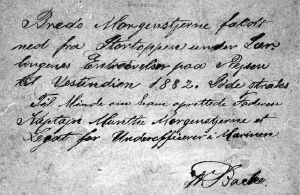 Bredo Morgenstjerne faldt
ned fra Stortoppen under Lær-
lingenes Entreøvelser paa Rejsen
til Vestindien 1882. Døde straks.
Til Minde om ham oprettede Faderen
Kaptajn Munthe Morgenstjerne et
Legat for Underofficerer i Marinen.